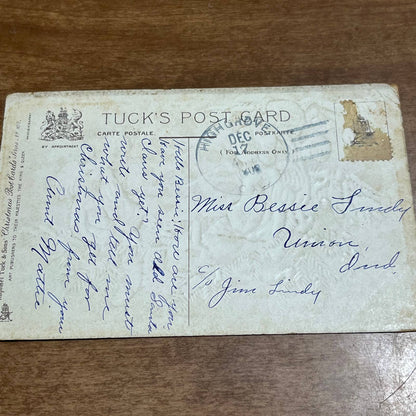 TUCK'S POST CARD
CARTE POSTALE.
POSTKARTE
(FOR ADDRESS ONLY)
BY APPOINTMENT
HIGHGROVE
DEC
17
Hello Bessie, How are you
Have you seen old Santa
Claus yet? You must
write and tell me
what you get for
Christmas from your
Aunt Mattie
Miss Bessie Lindy
Union,
Ind,
c/o Jim Lindy
Tuck & Sons' "Christmas" Post Cards Series
ART PUBLISHERS TO THEIR MAJESTIES THE KING & QUEEN